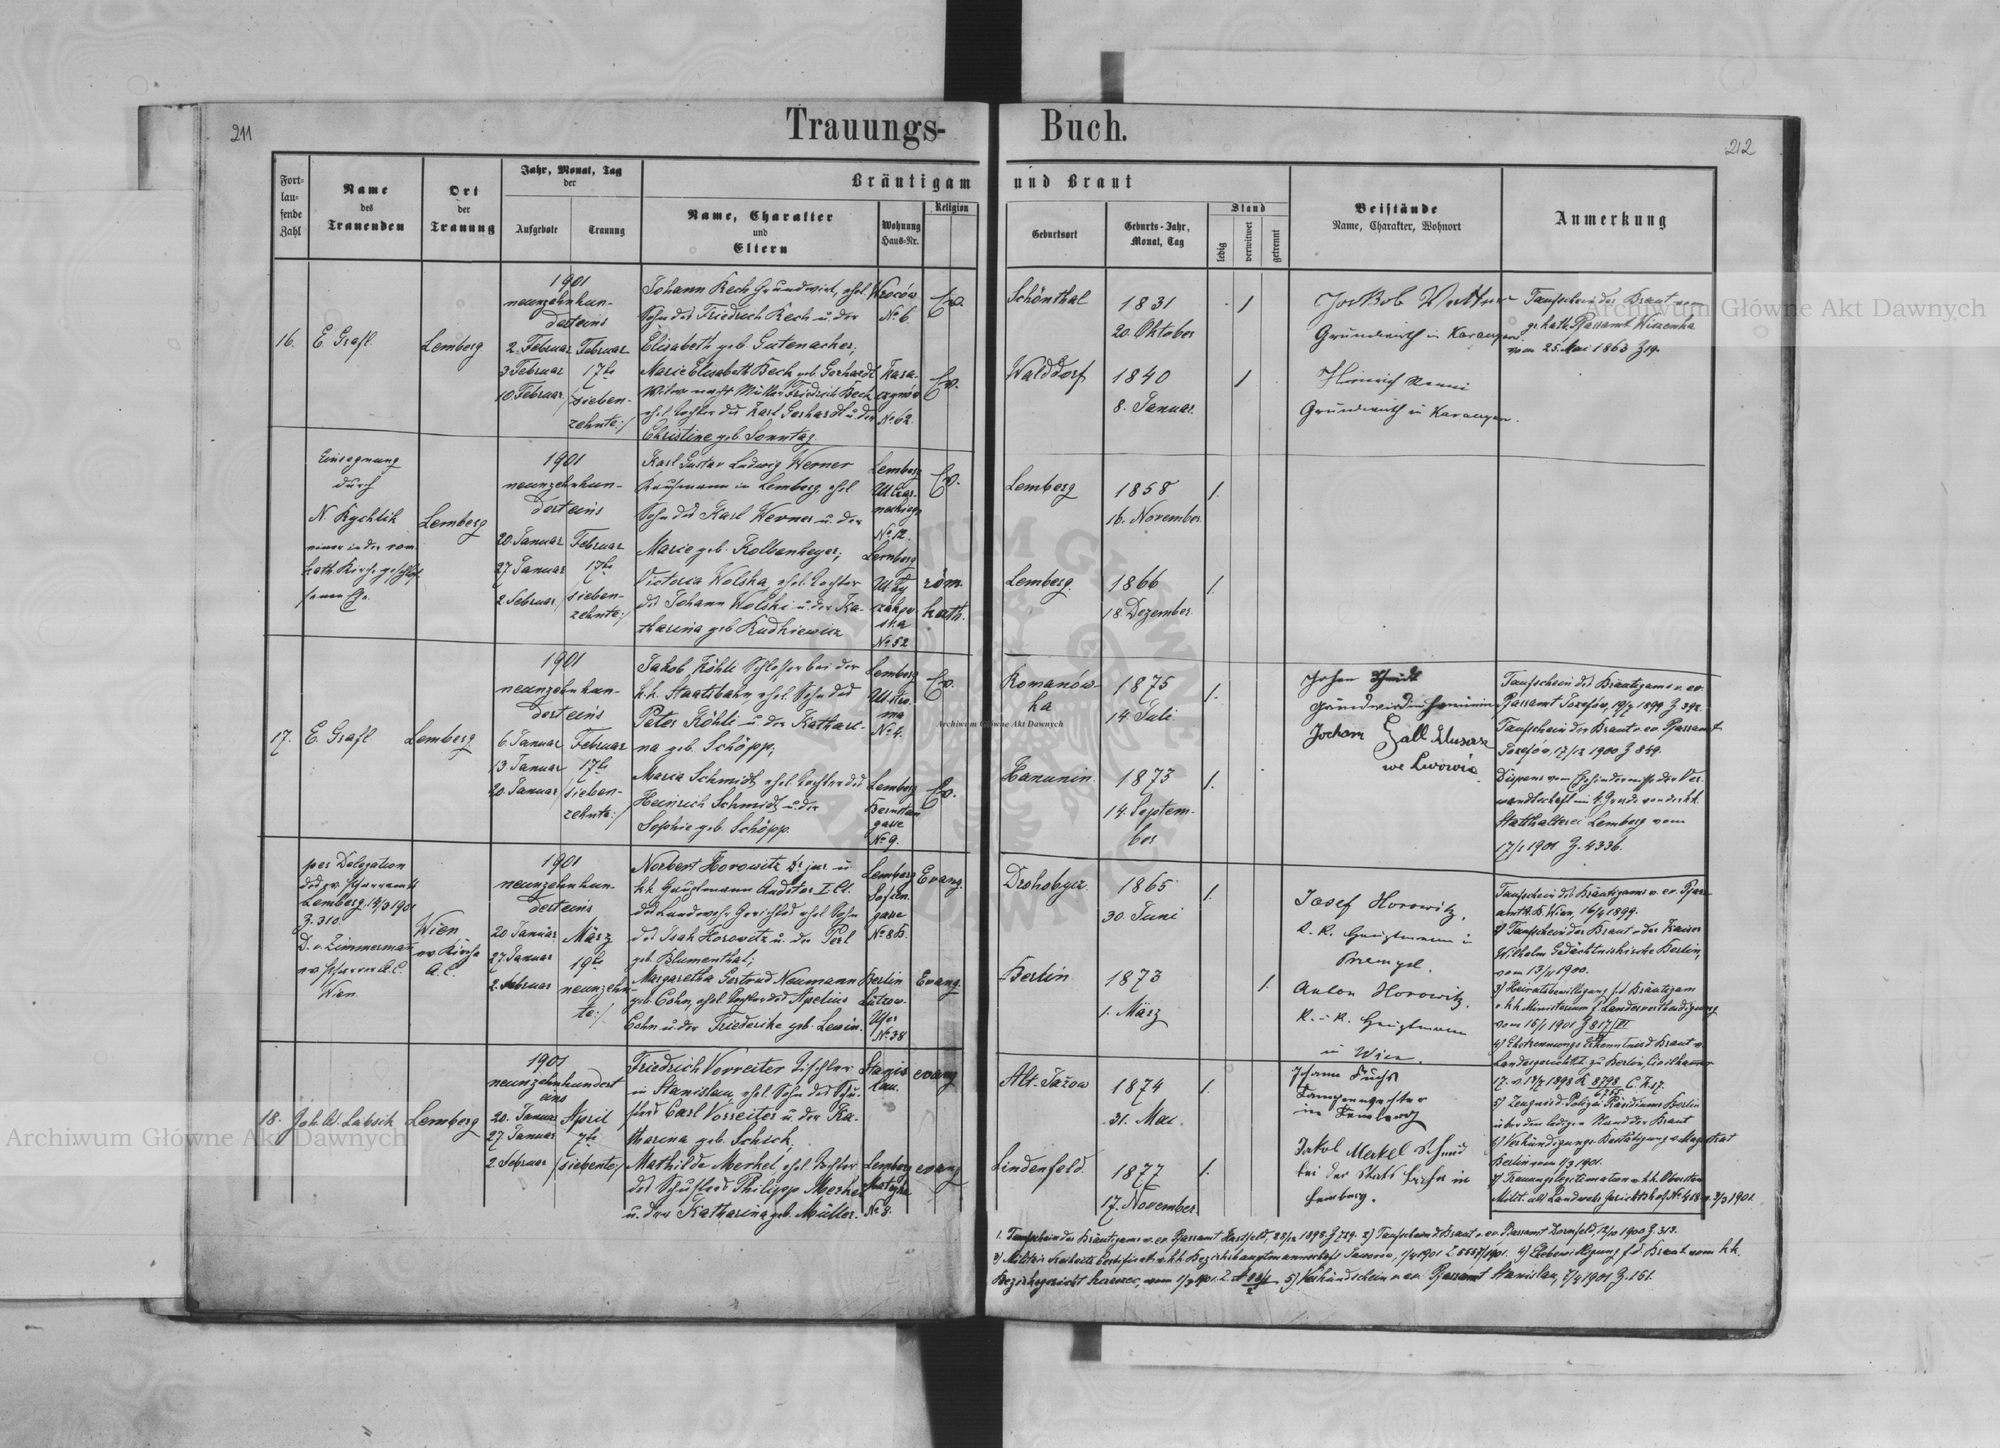 211
Trauungs-
Buch.
212
Fort-
lau-
fende
Zahl
Name
des
Trauenden
Ort
der
Trauung
Jahr, Monat, Tag
der
Aufgebote
Trauung
Bräutigam
und Braut
Name, Charakter
und
Eltern
Wohnung
Haus-Nr.
Religion
Geburtsort
Geburts-Jahr,
Monat, Tag
Stand
ledig
verwitwet
getrennt
Beistände
Name, Charakter, Wohnort
Anmerkung
16.
E. Grafl
Lemberg
1901
neunzehnhun-
derteins
2. Februar
3 Februar
10. Februar
Februar
17te
/sieben-
zehnte:/
Johann Rech Grundwirt, ehel.
Sohn des Friedrich Rech u. der
Elisabeth geb. Gutenacher;
Marie Elisabeth Bech geb. Gerhardt
Witwe nach Müller Friedrich Bech
ehel. Tochter des Karl Gerhardt u. der
Christine geb. Sonntag.
Wroców
No 6.
No 62.
Ev.
Ev.
Schönthal
1831
20. Oktober
1
Walddorf
1840
8. Januar.
1
Jackob
Grundwirth in
Heinrich
Grundwirth in
Taufschein der Braut vom
gr. kath. Pfarramt Wiszenka
vom 25. Mai 1863 Z 19.
Einsegnung
durch
N Rychlik
einer in der rom.
kath. Kirche geschlos-
senen Ehe.
Lemberg
1901
neunzehnhun-
derteins
20. Januar
27 Januar
2. Februar
Februar
17te
/sieben-
zehnte:/
Karl Gustav Ludwig Werner
Kaufmann in Lemberg, ehel.
Sohn des Karl Werner u. der
Marie geb. Kolbenheyer;
Victoria Wolska, ehel. Tochter
des Johann Wolski u. der Ka-
tharina geb. Rudkiewicz
Lemberg
No 12.
Lemberg
No 52
Ev.
röm.
kath.
Lemberg
1858
16. November.
1.
Lemberg.
1866
18. Dezember.
1.
17.
E. Grafl
Lemberg
1901
neunzehnhun-
derteins
6. Januar
13. Januar
20. Januar
Februar
17te
/sieben-
zehnte:/
Jakob Köhli Schlosser bei der
k. k. Staatsbahn, ehel. Sohn des
Peter Köhli u. der Kathari-
na geb. Schöpp;
Maria Schmidt, ehel. Tochter des
Heinrich Schmidt u. der
Sophie geb. Schöpp.
Lemberg
No 4.
Lemberg
Bernstein
gasse
No 9.
Ev.
Ev.
Romanów-
ka
1875
14. Juli
1.
Hanunin.
1873
14. Septem-
ber
1.
Johan Schmidt
Jochan Gall Slusarz
we Lwowie.
Taufschein des Bräutigams v. ev.
Pfarramt Josefów, 19/7 1899 Z 392.
Taufschein der Braut v. ev. Pfarramt
Josefów, 17/12 1900 Z. 849.
Dispens vom Ehehindernisse der Ver-
wandtschaft im 4. Grade von der k. k.
Statthalterei Lemberg vom
17/1 1901 Z. 4336.
per Delegation
des ev. Pfarramts
Lemberg, 14/3 1901
Z. 310
D. v. Zimmermann
ev. Pfarrer A. C.
Wien
Wien
ev. Kirche
A. C.
1901
neunzehnhun-
derteins
20 Januar
27 Januar
2. Februar
März
19te
neunzehn-
te:/
Norbert Horowitz Dr. jur. u.
k. k. Hauptmann Auditor I. Cl.
des Landwehr Gerichtes ehel. Sohn
des Isak Horowitz u. der Perl
geb. Blumenthal;
Margaretha Gertrud Neumann
geb. Cohn, ehel. Tochter des Apelius
Cohn u. der Friederike geb. Lewin.
Lemberg
Sofien-
gasse
No 8 B.
Berlin
Lützow-
Ufer
No 38
Evang.
Evang.
Drohobycz.
1865
30. Juni
1.
Berlin
1873
1. März
1.
Josef Horowitz,
k. k. Hauptmann in
Przemysl.
Anton Horowitz,
k. u. k. Hauptmann
in Wien.
Taufschein des Bräutigams v. ev. Pfarr-
amt A. B. Wien, 16/4 1899.
2) Taufschein der Braut v. der Kaiser
Wilhelm Gedächtniskirche Berlin,
vom 13/11 1900.
3) Heiratsbewilligung f. d. Bräutigam
v. k. k. Ministerium f. Landesverteidigung
vom 16/1 1901 Z 817/VI
4) Ehetrennungs Erkenntnis d. Braut v.
Landesgericht I. zu Berlin, Civilkammer
17. v. 14/7 1898 R 8798/6755 C. K. 17.
5) Zeugnis d. Polizei Präsidiums Berlin
über den ledigen Stand der Braut
6) Verkündigungs Bestätigung v. Magistrat
Berlin vom 1/3 1901.
7) Trauungslegitimation v. k. k. Obersten
Milit. als Landwehr Gerichtshof No 418 v. 3/3 1901.
18.
Joh. W. Labsik
Lemberg
1901
neunzehnhundert
eins
20. Januar
27 Januar
2. Februar
April
7te
/siebente:/
Friedrich Vorreiter Tischler
in Stanislau, ehel. Sohn des Schu-
sters Carl Vorreiter u. der Ka-
tharina geb. Schick;
Mathilde Merkel, ehel. Tochter
des Schusters Philipp Merkel
u. der Katharina geb. Müller.
Stanis
lau.
Lemberg
No 8.
evang
evang
Alt-Jażow
1874
31. Mai.
1.
Lindenfeld.
1877
17. November
1.
Johann Fuchs
in Lemberg
Jakob Merkel Schmid
bei der Stats in
Lemberg.
1. Taufschein des Bräutigams v. ev. Pfarramt Hartfeld, 28/12 1898 Z 729. 2) Taufschein d. Braut v. ev. Pfarramt Dornfeld, 12/10 1900 Z. 313.
3) Militär Freiheits Certificat v. k. k. Bezirkshauptmannschaft Jaworów, 1/4 1901 Z. 5557/1901. 4) Ehebewilligung f. d. Braut vom k. k.
Bezirksgericht vom 1/3 1901. Z. 5) Verkündschein v. ev. Pfarramt Stanislau, 7/4 1901 Z. 151.
Archiwum Główne Akt Dawnych
Archiwum Główne Akt Dawnych
Archiwum Główne Akt Dawnych